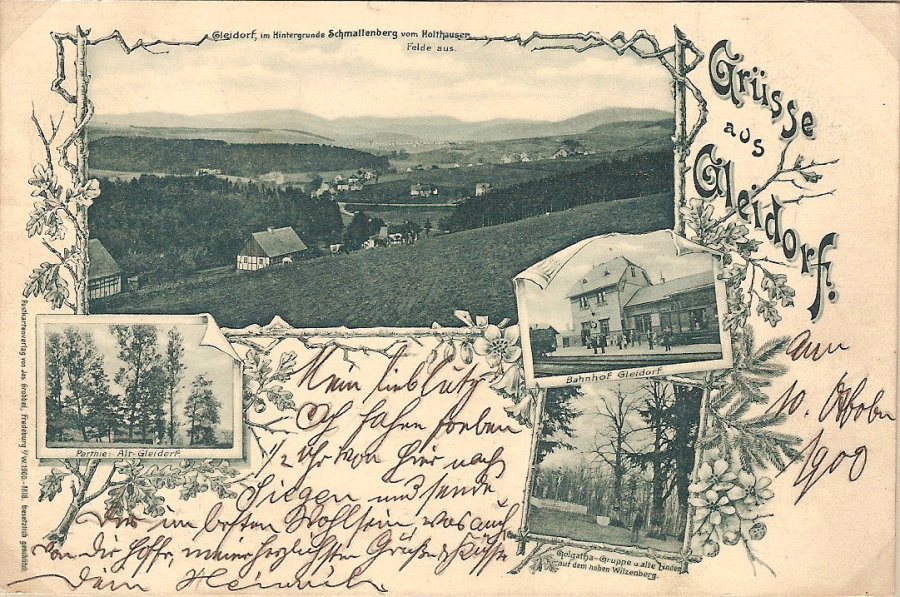 Gleidorf, im Hintergrunde Schmallenberg vom Holthauser
Felde aus.
Grüsse
aus
Gleidorf.
Bahnhof Gleidorf.
Parthie: Alt-Gleidorf.
Golgatha-Gruppe u. alte Linden
auf dem hohen Wilzenberg.
Postkartenverlag von Jos. Grobbel, Fredeburg i/W. 1900.
Gesetzlich geschützt.
am
10. Oktober
1900
Mein lieb
Ich fahre soeben
1/2 Uhr von hier nach
Siegen und sende
Dir im besten Wohlsein, was auch
von Dir hoffe, meine herzlichsten Grüße & Küsse
Dein Heinrich